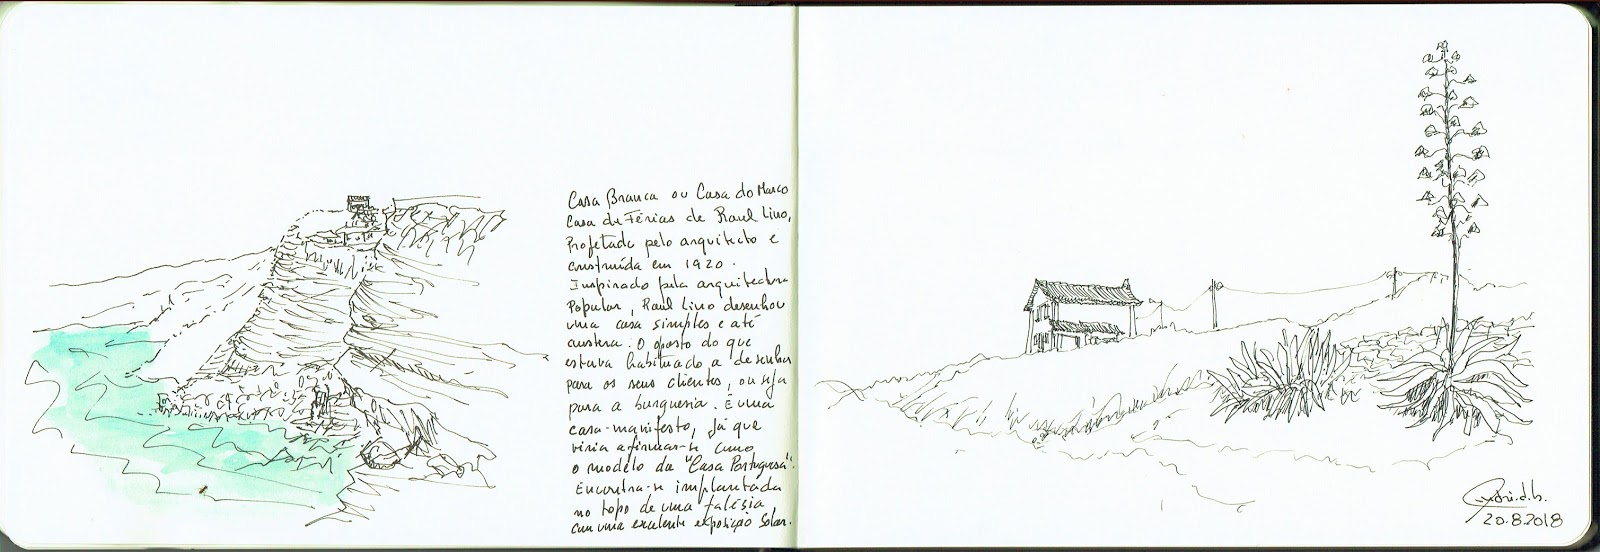 Casa Branca ou Casa do Marco
Casa de Férias de Raul Lino,
Projetada pelo arquitecto e
construída em 1920.
Inspirado pela arquitectura
Popular, Raul Lino desenhou
uma casa simples e até
austera. O oposto do que
estava habituado a desenhar
para os seus clientes, ou seja
para a burguesia. É uma
casa-manifesto, já que
viria afirmar-se como
o modelo da "Casa Portuguesa".
Encontra-se implantada
no topo de uma falésia,
com uma excelente exposição solar.
20.8.2018